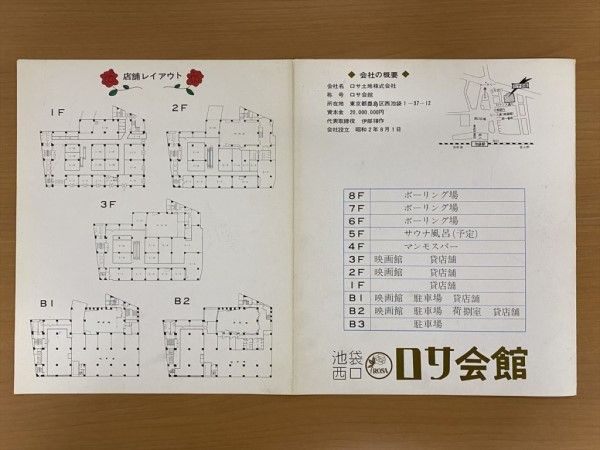 店舗レイアウト
1F
2F
3F
B1
B2
◆ 会社の概要 ◆
会社名 ロサ土地株式会社
称号 ロサ会館
所在地 東京都豊島区西池袋1-37-12
資本金 20,000,000円
代表取締役
会社設立 昭和2年8月1日
池袋駅
8F ボーリング場
7F ボーリング場
6F ボーリング場
5F サウナ風呂(予定)
4F マンモスバー
3F 映画館 貸店舗
2F 映画館 貸店舗
1F 貸店舗
B1 映画館 駐車場 貸店舗
B2 映画館 駐車場 荷捌室 貸店舗
B3 駐車場
池袋西口 ROSA ロサ会館